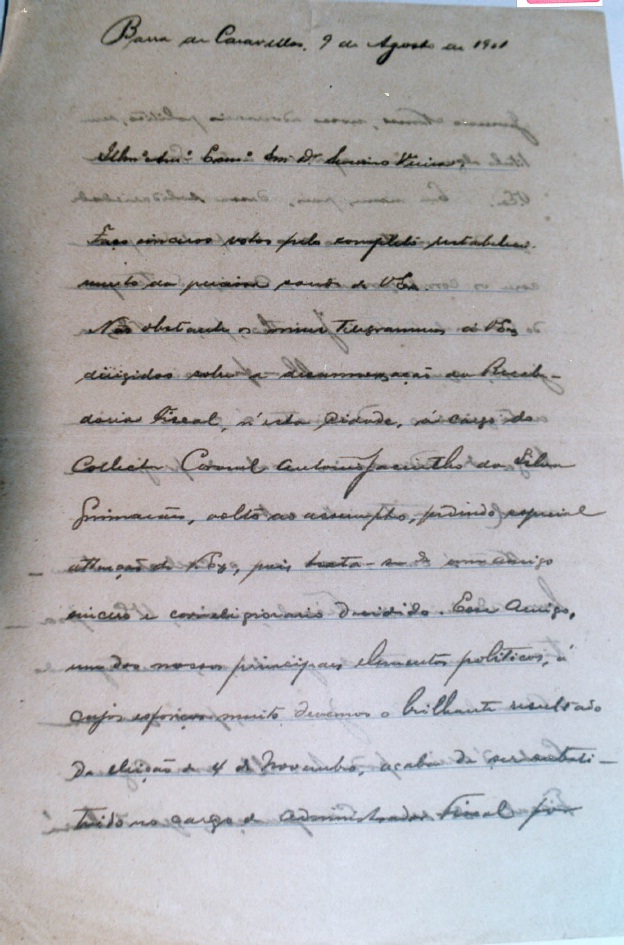 Barra de Caravellas, 9 de Agosto de 1901
Illmº Amº Exmº Snr Dr. Severino Vieira,
Faço sinceros votos pelo completo restabeleci-
mento da preciosa saude de V Exª.
Não obstante os meus Telegrammas á V Exª
dirigidos sobre a desannexação da Recebe-
doria Fiscal, n'esta Cidade, á cargo do
Collector Coronel Antonio Jacintho da Silva
Guimarães, volto ao assumpto, pedindo especial
attenção de V Exª, pois trata-se de um amigo
sincero e correligionario decidido. Esse Amigo,
um dos nossos principaes elementos politicos, á
cujos esforços muito devemos o brilhante resultado
da eleição de 4 de Novembro, acaba de ser substi-
tuido no cargo de Administrador Fiscal por